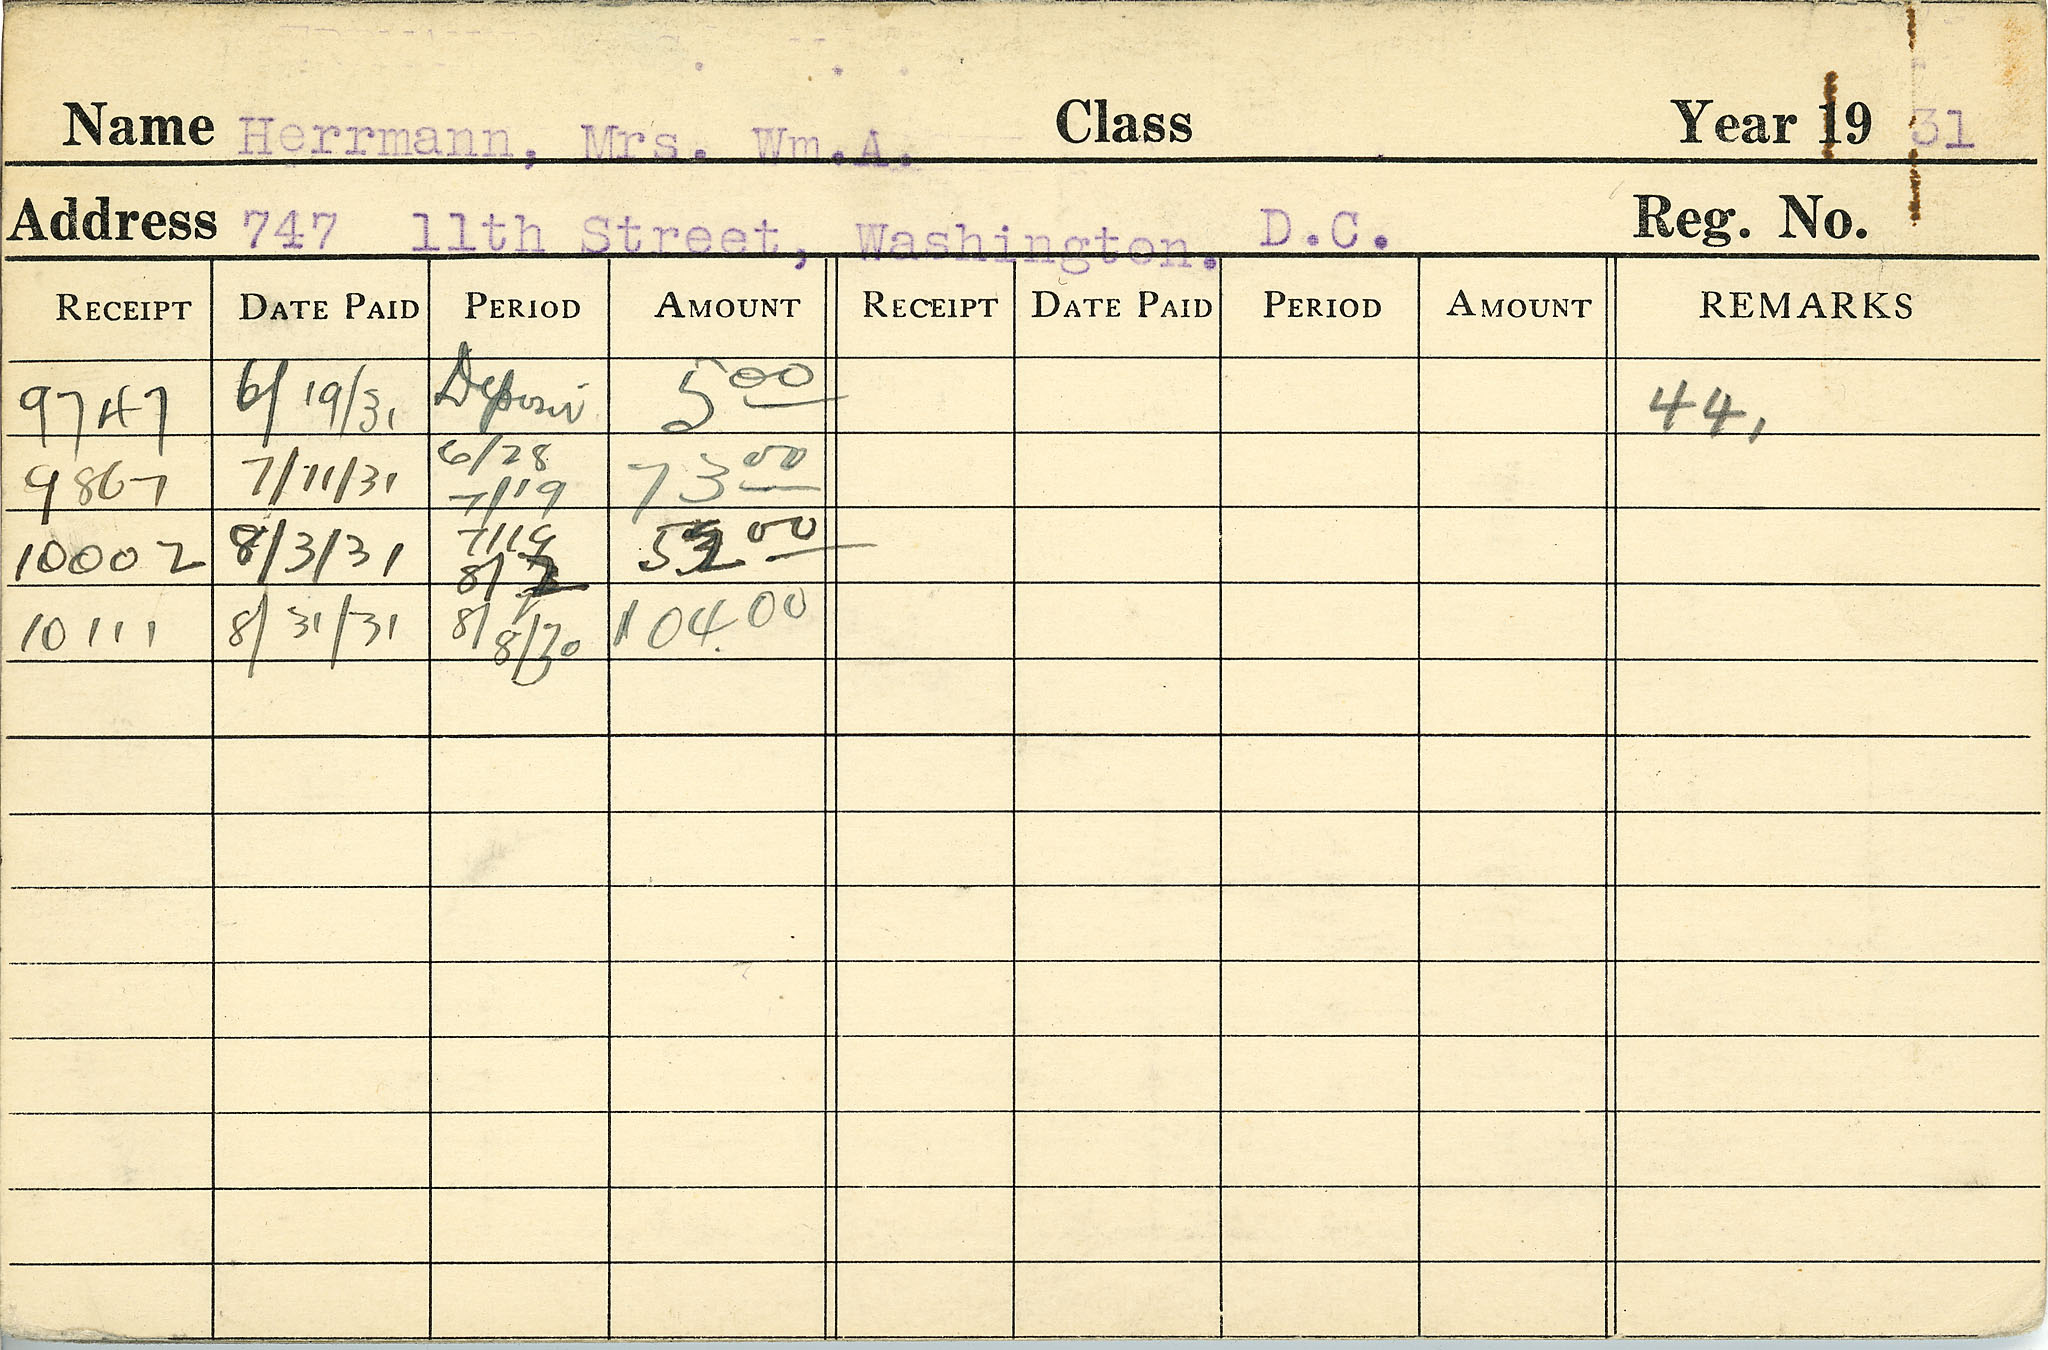 Name Herrmann, Mrs. Wm.A. Class Year 19 31
Address 747 11th Street, Washington. D.C. Reg. No.
RECEIPT DATE PAID PERIOD AMOUNT RECEIPT DATE PAID PERIOD AMOUNT REMARKS
9747 6/19/31 Deposit 5 00 44,
9867 7/11/31 6/28 7/19 73 00
10002 8/3/31 7/19 8/2 52 00
10111 8/31/31 8/ 8/30 104.00